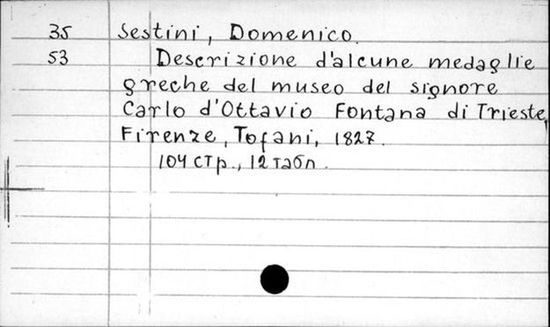 35 Sestini, Domenico.
53 Descrizione d'alcune medaglie
greche del museo del signore
Carlo d'Ottavio Fontana di Trieste,
Firenze, Tofani, 1827.
104 стр., 12 табл.